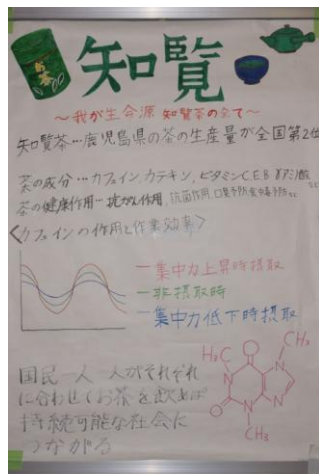 お茶
知覧
～我が生命源 知覧茶の全て～
知覧茶…鹿児島県の茶の生産量が全国第2位
茶の成分…カフェイン、カテキン、ビタミンC、E、B
茶の健康作用－抗がん作用、抗菌作用、口臭予防、食中毒予防 etc
〈カフェインの作用と作業効率〉
－集中力上昇時摂取
－非摂取時
－集中力低下時摂取
H₃C
O
CH₃
N
N
O
N
N
CH₃
国民一人一人がそれぞれ
に合わせてお茶を飲めば
持続可能な社会に
つながる